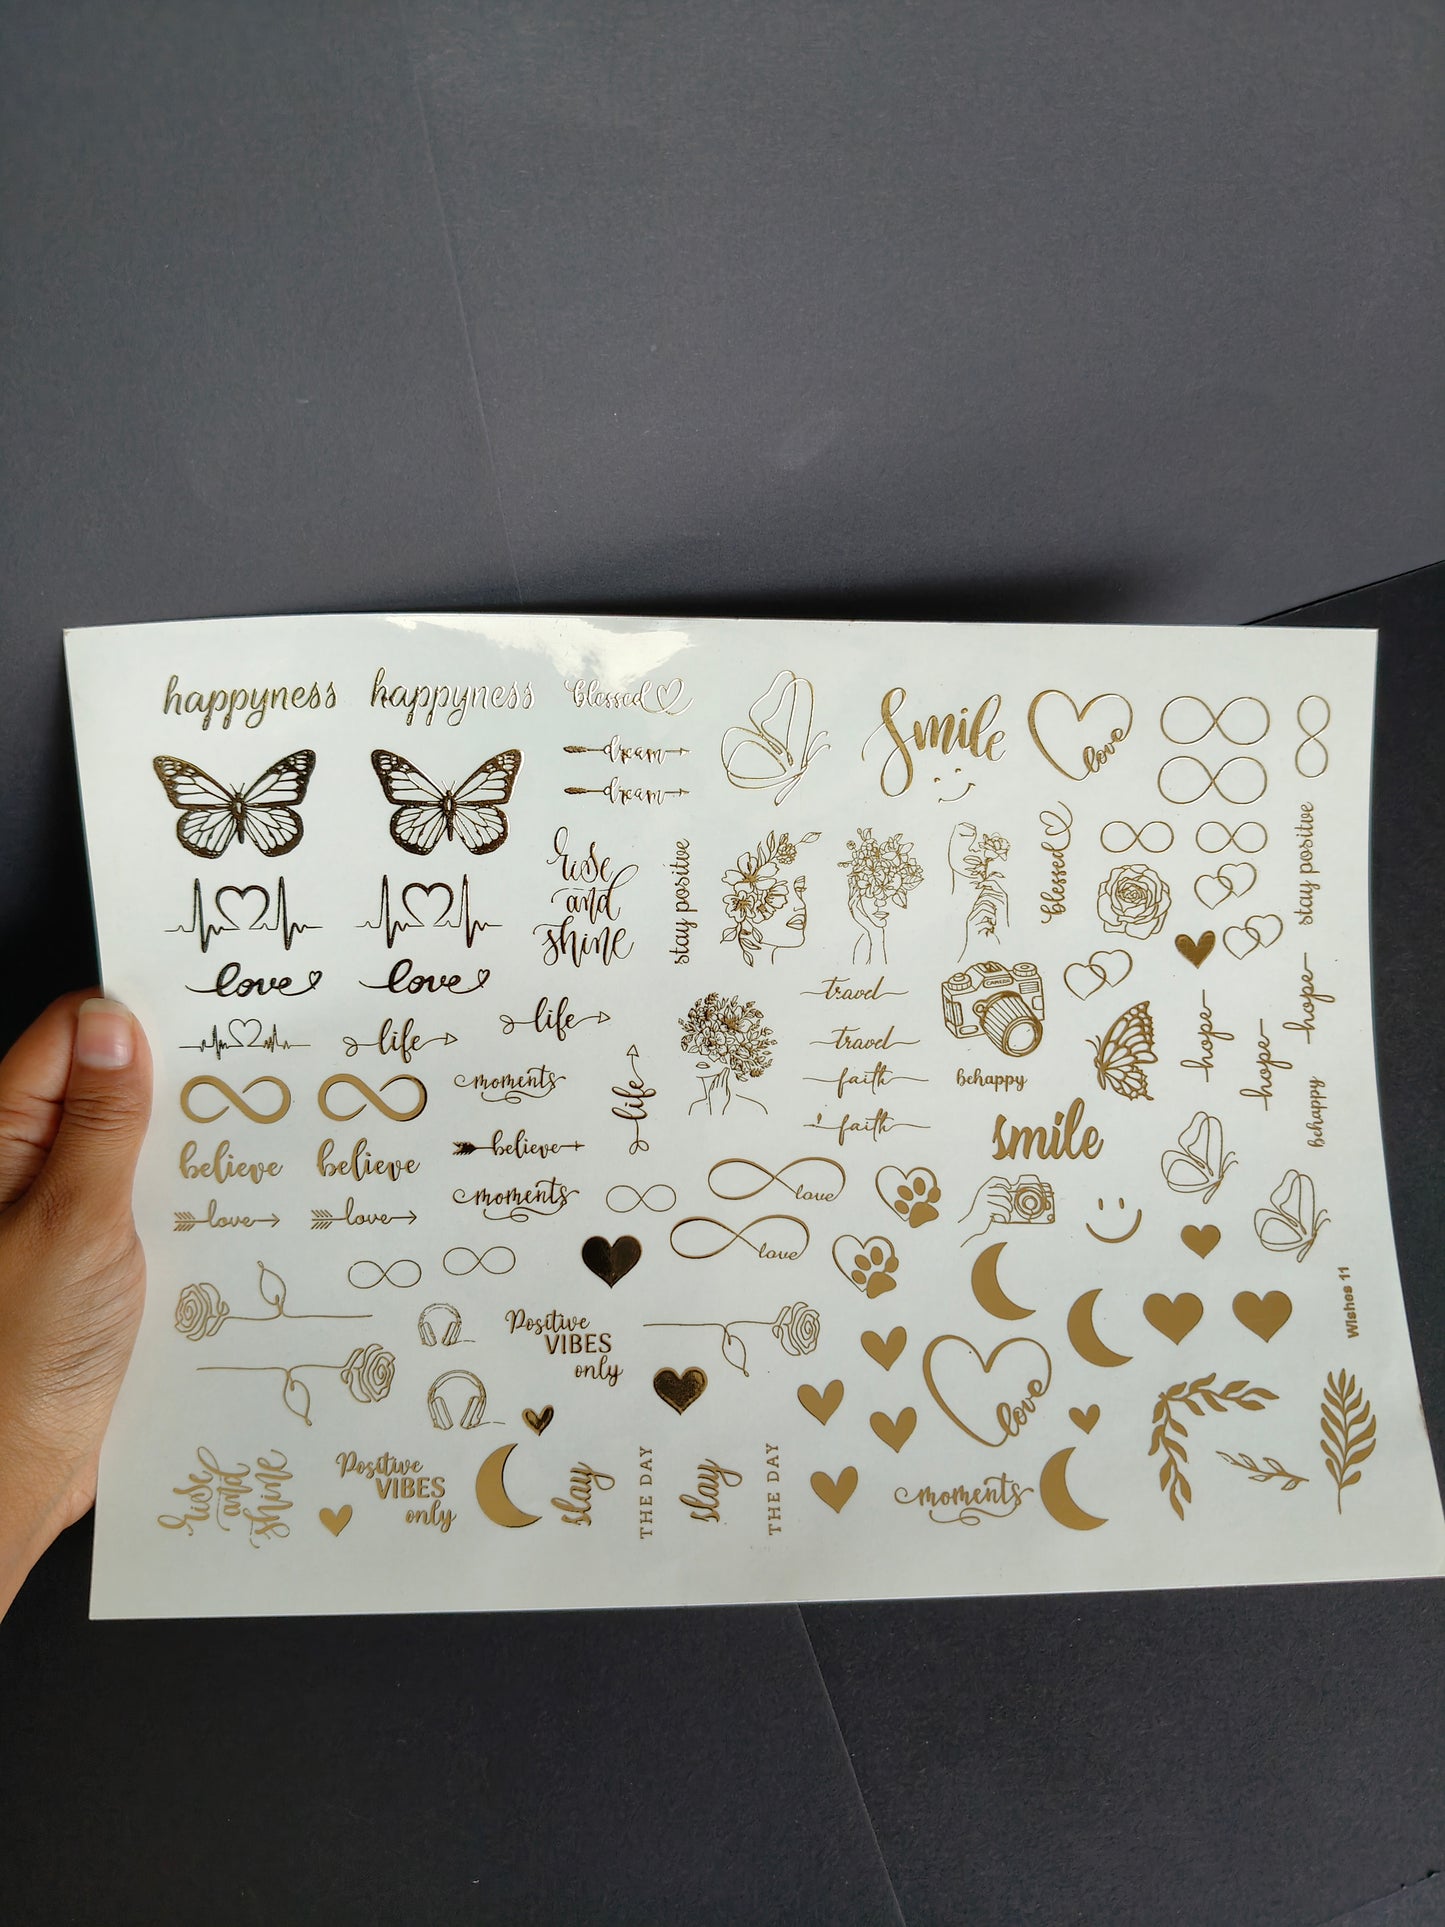 happyness
happyness
blessed
dream
dream
Smile
love
rise
and
shine
stay positive
blessed
stay positive
love
love
life
life
life
travel
travel
faith
faith
CAMERA
behappy
hope
hope
hope
behappy
moments
believe
believe
believe
moments
love
love
love
love
smile
Positive
VIBES
only
Wishes 11
love
rise
and
shine
Positive
VIBES
only
slay
THE DAY
slay
THE DAY
moments